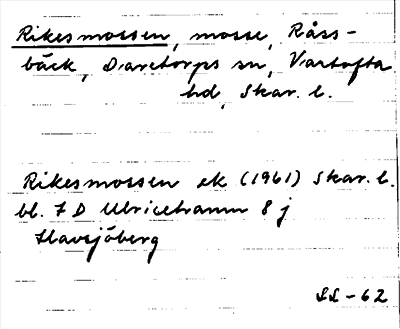 Rikesmossen, mosse, Råss-
bäck, Daretorps sn, Vartofta
hd, Skar. l.
Rikesmossen ek (1961) Skar. l.
bl. 7 D Ulricehamn 8 j
Havsjöberg
LL-62